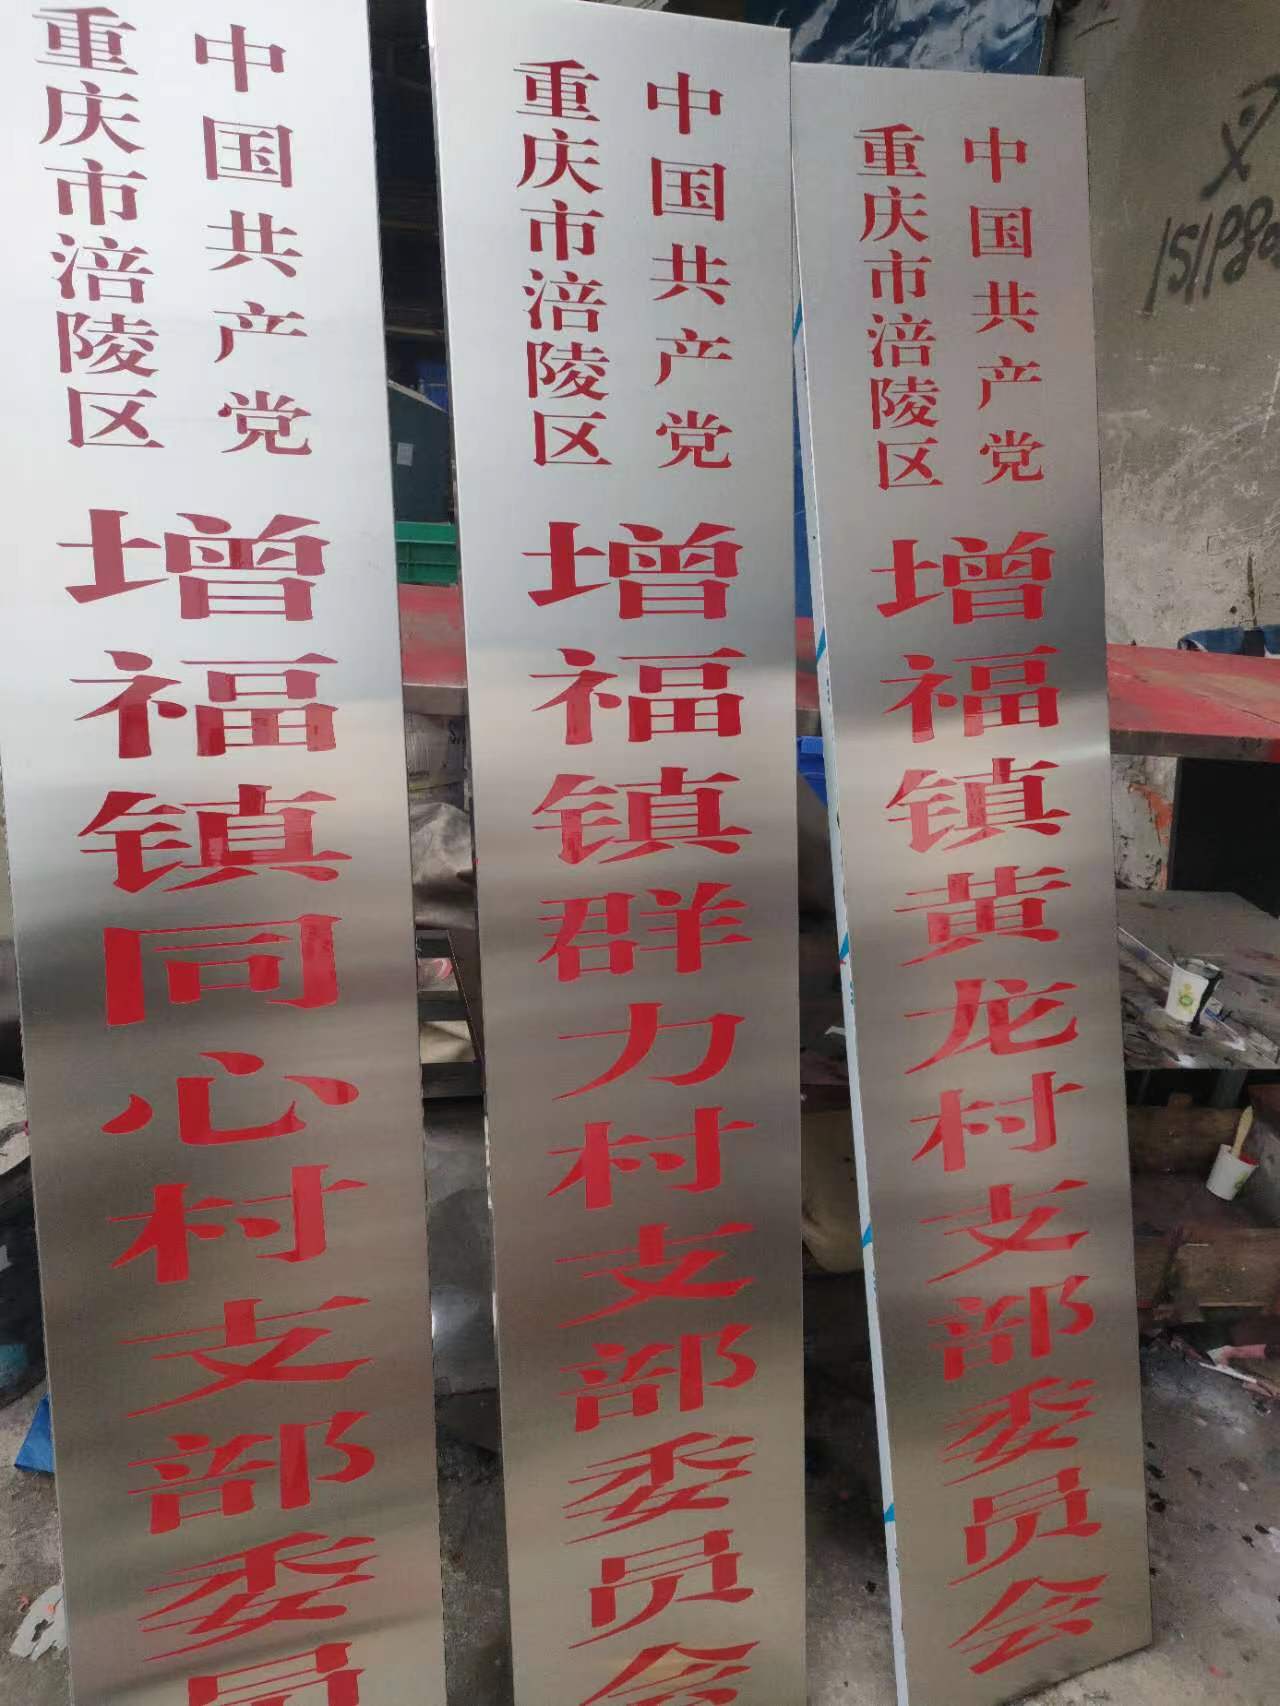 中国共产党
重庆市涪陵区
增福镇同心村支部委员
中国共产党
重庆市涪陵区
增福镇群力村支部委员会
中国共产党
重庆市涪陵区
增福镇黄龙村支部委员会